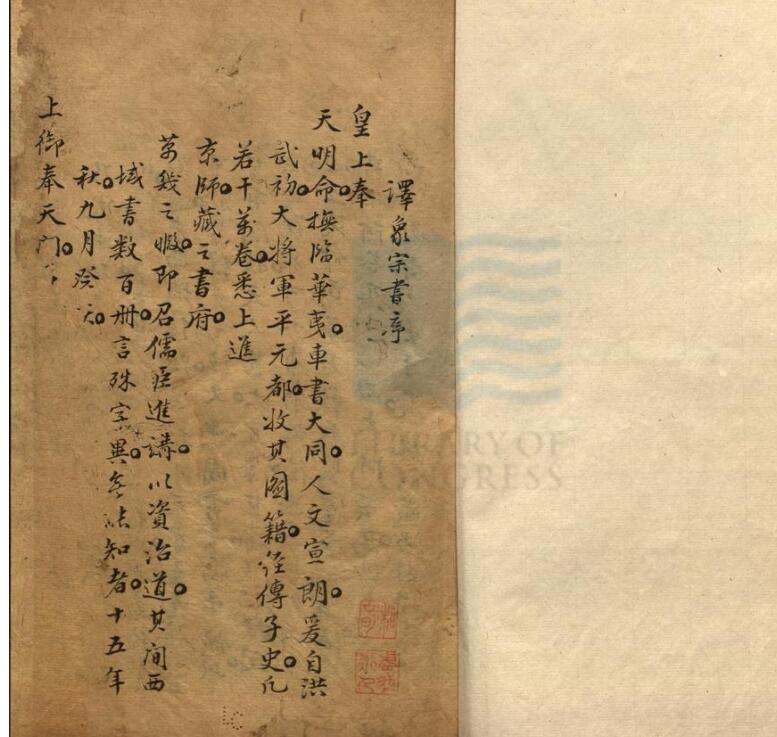 譯象宗書序
皇上奉
天明命。撫臨華夷。車書大同。人文宣朗。爰自洪
武初。大將軍平元都。收其圖籍。經傳子史。凡
若干萬卷。悉上進
京師。藏之書府。
萬幾之暇。即召儒臣進講。以資治道。其間西
域書數百册。言殊字異。無能知者。十五年
秋。九月癸
上御奉天門。
LIBRARY OF
CONGRESS